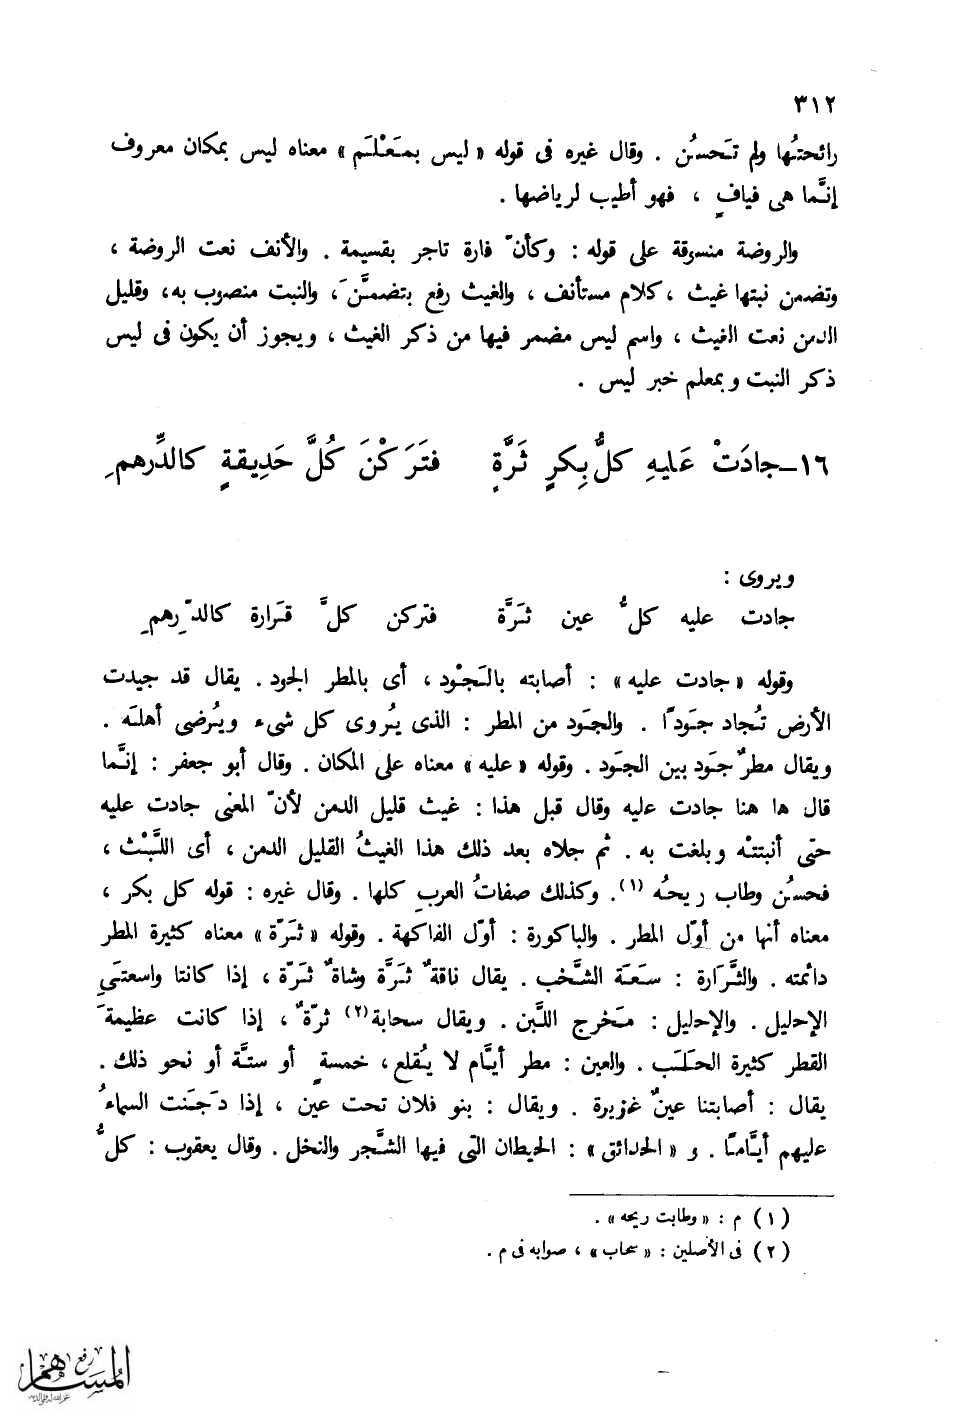 ٣١٢
رائحتُها ولم تَحسُن . وقال غيره فى قوله « ليس بمَعْلَم » معناه ليس بمكان معروف
إنَّما هى فيافٍ ، فهو أطيب لرياضها .
والروضة منسوقة على قوله : وكأنّ فارة تاجر بقسيمة . والأنف نعت الروضة ،
وتضمن نبتها غيث ، كلام مستأنف ، والغيث رفع بتضمَّنَ، والنبت منصوب به، وقليل
الدمن نعت الغيث ، واسم ليس مضمر فيها من ذكر الغيث ، ويجوز أن يكون فى ليس
ذكر النبت وبمعلم خبر ليس .
١٦ـ جادَتْ عَليهِ كلُّ بِكرٍ ثَرَّةٍ فتَرَكْنَ كُلَّ حَدِيقةٍ كالدِّرهمِ
ويروى :
جادت عليه كلُّ عين ثَرَّة فتركن كلَّ قَرارة كالدّرِهمِ
وقوله « جادت عليه » : أصابته بالَجْود ، أى بالمطر الجَود . يقال قد جيدت
الأرض تُجاد جَودًا . والجَود من المطر : الذى يُروى كل شىء ويُرضى أهلَه .
ويقال مطرٌ جَود بين الجَود . وقوله « عليه » معناه على المكان . وقال أبو جعفر : إنَّما
قال ها هنا جادت عليه وقال قبل هذا : غيث قليل الدمن لأنّ المعنى جادت عليه
حتى أنبتتْه وبلغت به . ثم جلاه بعد ذلك هذا الغيثُ القليل الدمن ، أى اللَّبْث ،
فحسُن وطاب ريحُه (١). وكذلك صفاتُ العربِ كلها . وقال غيره : قوله كل بكر ،
معناه أنها من أوّل المطر . والباكورة : أوّل الفاكهة . وقوله « ثَرّة » معناه كثيرة المطر
دائمته . والثَّرَارة : سَعَة الشَّخب . يقال ناقةٌ ثَرَّة وشاةٌ ثَرّة ، إذا كانتا واسعتَىِ
الإحليل . والإحليل : مَخرج اللَّبن . ويقال سحابة (٢) ثرّةٌ ، إذا كانت عظيمةَ
القطر كثيرة الحَلَب . والعين : مطر أيَّام لا يُقلع، خمسةٍ أو ستَّة أو نحو ذلك .
يقال : أصابتنا عينٌ غزيرة . ويقال : بنو فلان تحت عين ، إذا دَجَنت السماءُ
عليهم أيَّامًا . و « الحدائق » : الحيطان التى فيها الشَّجر والنخل . وقال يعقوب : كلُّ
( ١ ) م : « وطابت ريحه » .
( ٢ ) فى الأصلين : « سحاب » ، صوابه فى م .
رفع
المساهم